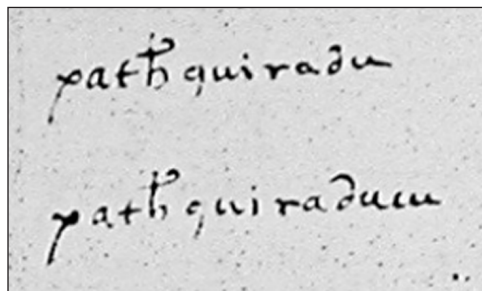 path quiradu
path quiraducu